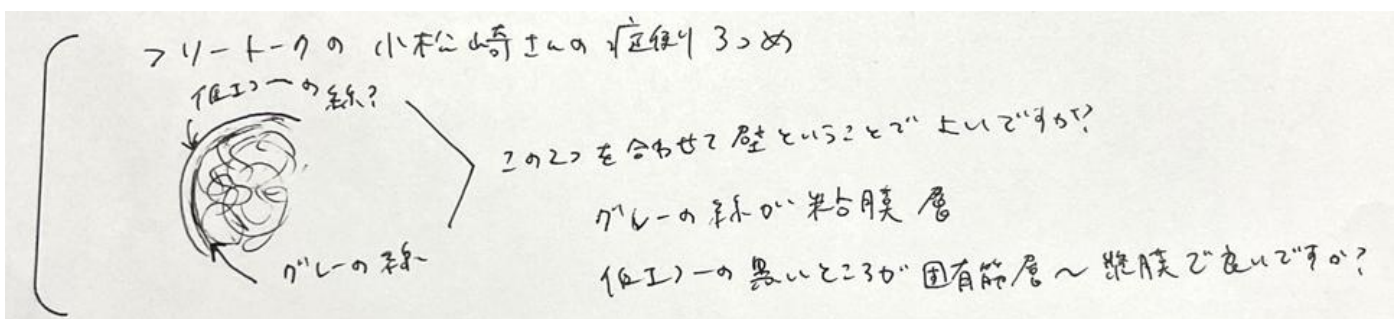 フリートークの 小松崎さんの 症例 3つめ
低エコーの 線?
この2つを合わせて 壁ということで よいですか?
グレーの線が 粘膜層
グレーの線
低エコーの 黒いところが 固有筋層〜漿膜で良いですか?